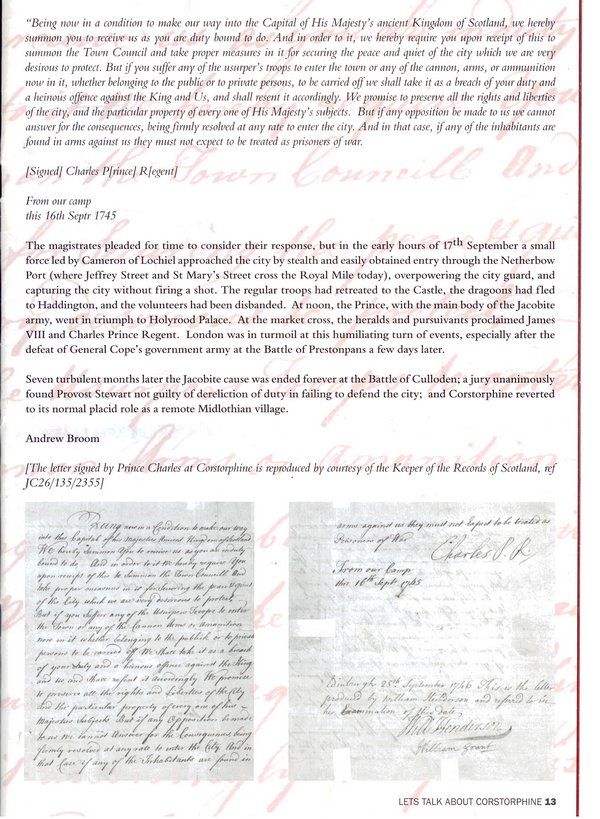 “Being now in a condition to make our way into the Capital of His Majesty's ancient Kingdom of Scotland, we hereby
summon you to receive us as you are duty bound to do. And in order to it, we hereby require you upon receipt of this to
summon the Town Council and take proper measures in it for securing the peace and quiet of the city which we are very
desirous to protect. But if you suffer any of the usurper's troops to enter the town or any of the cannon, arms, or ammunition
now in it, whether belonging to the public or to private persons, to be carried off we shall take it as a breach of your duty and
a heinous offence against the King and Us, and shall resent it accordingly. We promise to preserve all the rights and liberties
of the city, and the particular property of every one of His Majesty's subjects. But if any opposition be made to us we cannot
answer for the consequences, being firmly resolved at any rate to enter the city. And in that case, if any of the inhabitants are
found in arms against us they must not expect to be treated as prisoners of war.
[Signed] Charles P[rince] R[egent]
From our camp
this 16th Septr 1745
The magistrates pleaded for time to consider their response, but in the early hours of 17th September a small
force led by Cameron of Lochiel approached the city by stealth and easily obtained entry through the Netherbow
Port (where Jeffrey Street and St Mary's Street cross the Royal Mile today), overpowering the city guard, and
capturing the city without firing a shot. The regular troops had retreated to the Castle, the dragoons had fled
to Haddington, and the volunteers had been disbanded. At noon, the Prince, with the main body of the Jacobite
army, went in triumph to Holyrood Palace. At the market cross, the heralds and pursuivants proclaimed James
VIII and Charles Prince Regent. London was in turmoil at this humiliating turn of events, especially after the
defeat of General Cope's government army at the Battle of Prestonpans a few days later.
Seven turbulent months later the Jacobite cause was ended forever at the Battle of Culloden; a jury unanimously
found Provost Stewart not guilty of dereliction of duty in failing to defend the city; and Corstorphine reverted
to its normal placid role as a remote Midlothian village.
Andrew Broom
[The letter signed by Prince Charles at Corstorphine is reproduced by courtesy of the Keeper of the Records of Scotland, ref
JC26/135/2355]
Being now in a Condition to make our way
into this Capital of his Majesties Ancient Kingdom of Scotland
We hereby Summon You to receive us as you are in duty
bound to do. And in order to it We hereby require You
upon receipt of this to Summon the Town Councill And
take proper measures in it for Securing the peace & quiet
of the City which we are very desirous to protect
But if you Suffer any of the Usurpers Troops to enter
the Town or any of the Cannon Arms or Amunition
now in it whether belonging to the publick or to private
persons to be carried off We shall take it as a breach
of your Duty and a hienous offence against the King
and us and shall resent it accordingly We promise
to preserve all the rights and Liberties of the City
and the particular property of every one of his
Majesties Subjects But if any Opposition be made
to us we cannot Answer for the Consequences being
firmly resolved at any rate to enter the City And in
that Case if any of the Inhabitants are found in
arms against us they must not Expect to be treated as
Prisoners of War
Charles P. R.
From our Camp
this 16th Septr 1745
Edinburgh 25th September 1746 This is the letter
produced by William Henderson and refered to in
his Examination of this date
Will Henderson
William Grant
LETS TALK ABOUT CORSTORPHINE 13